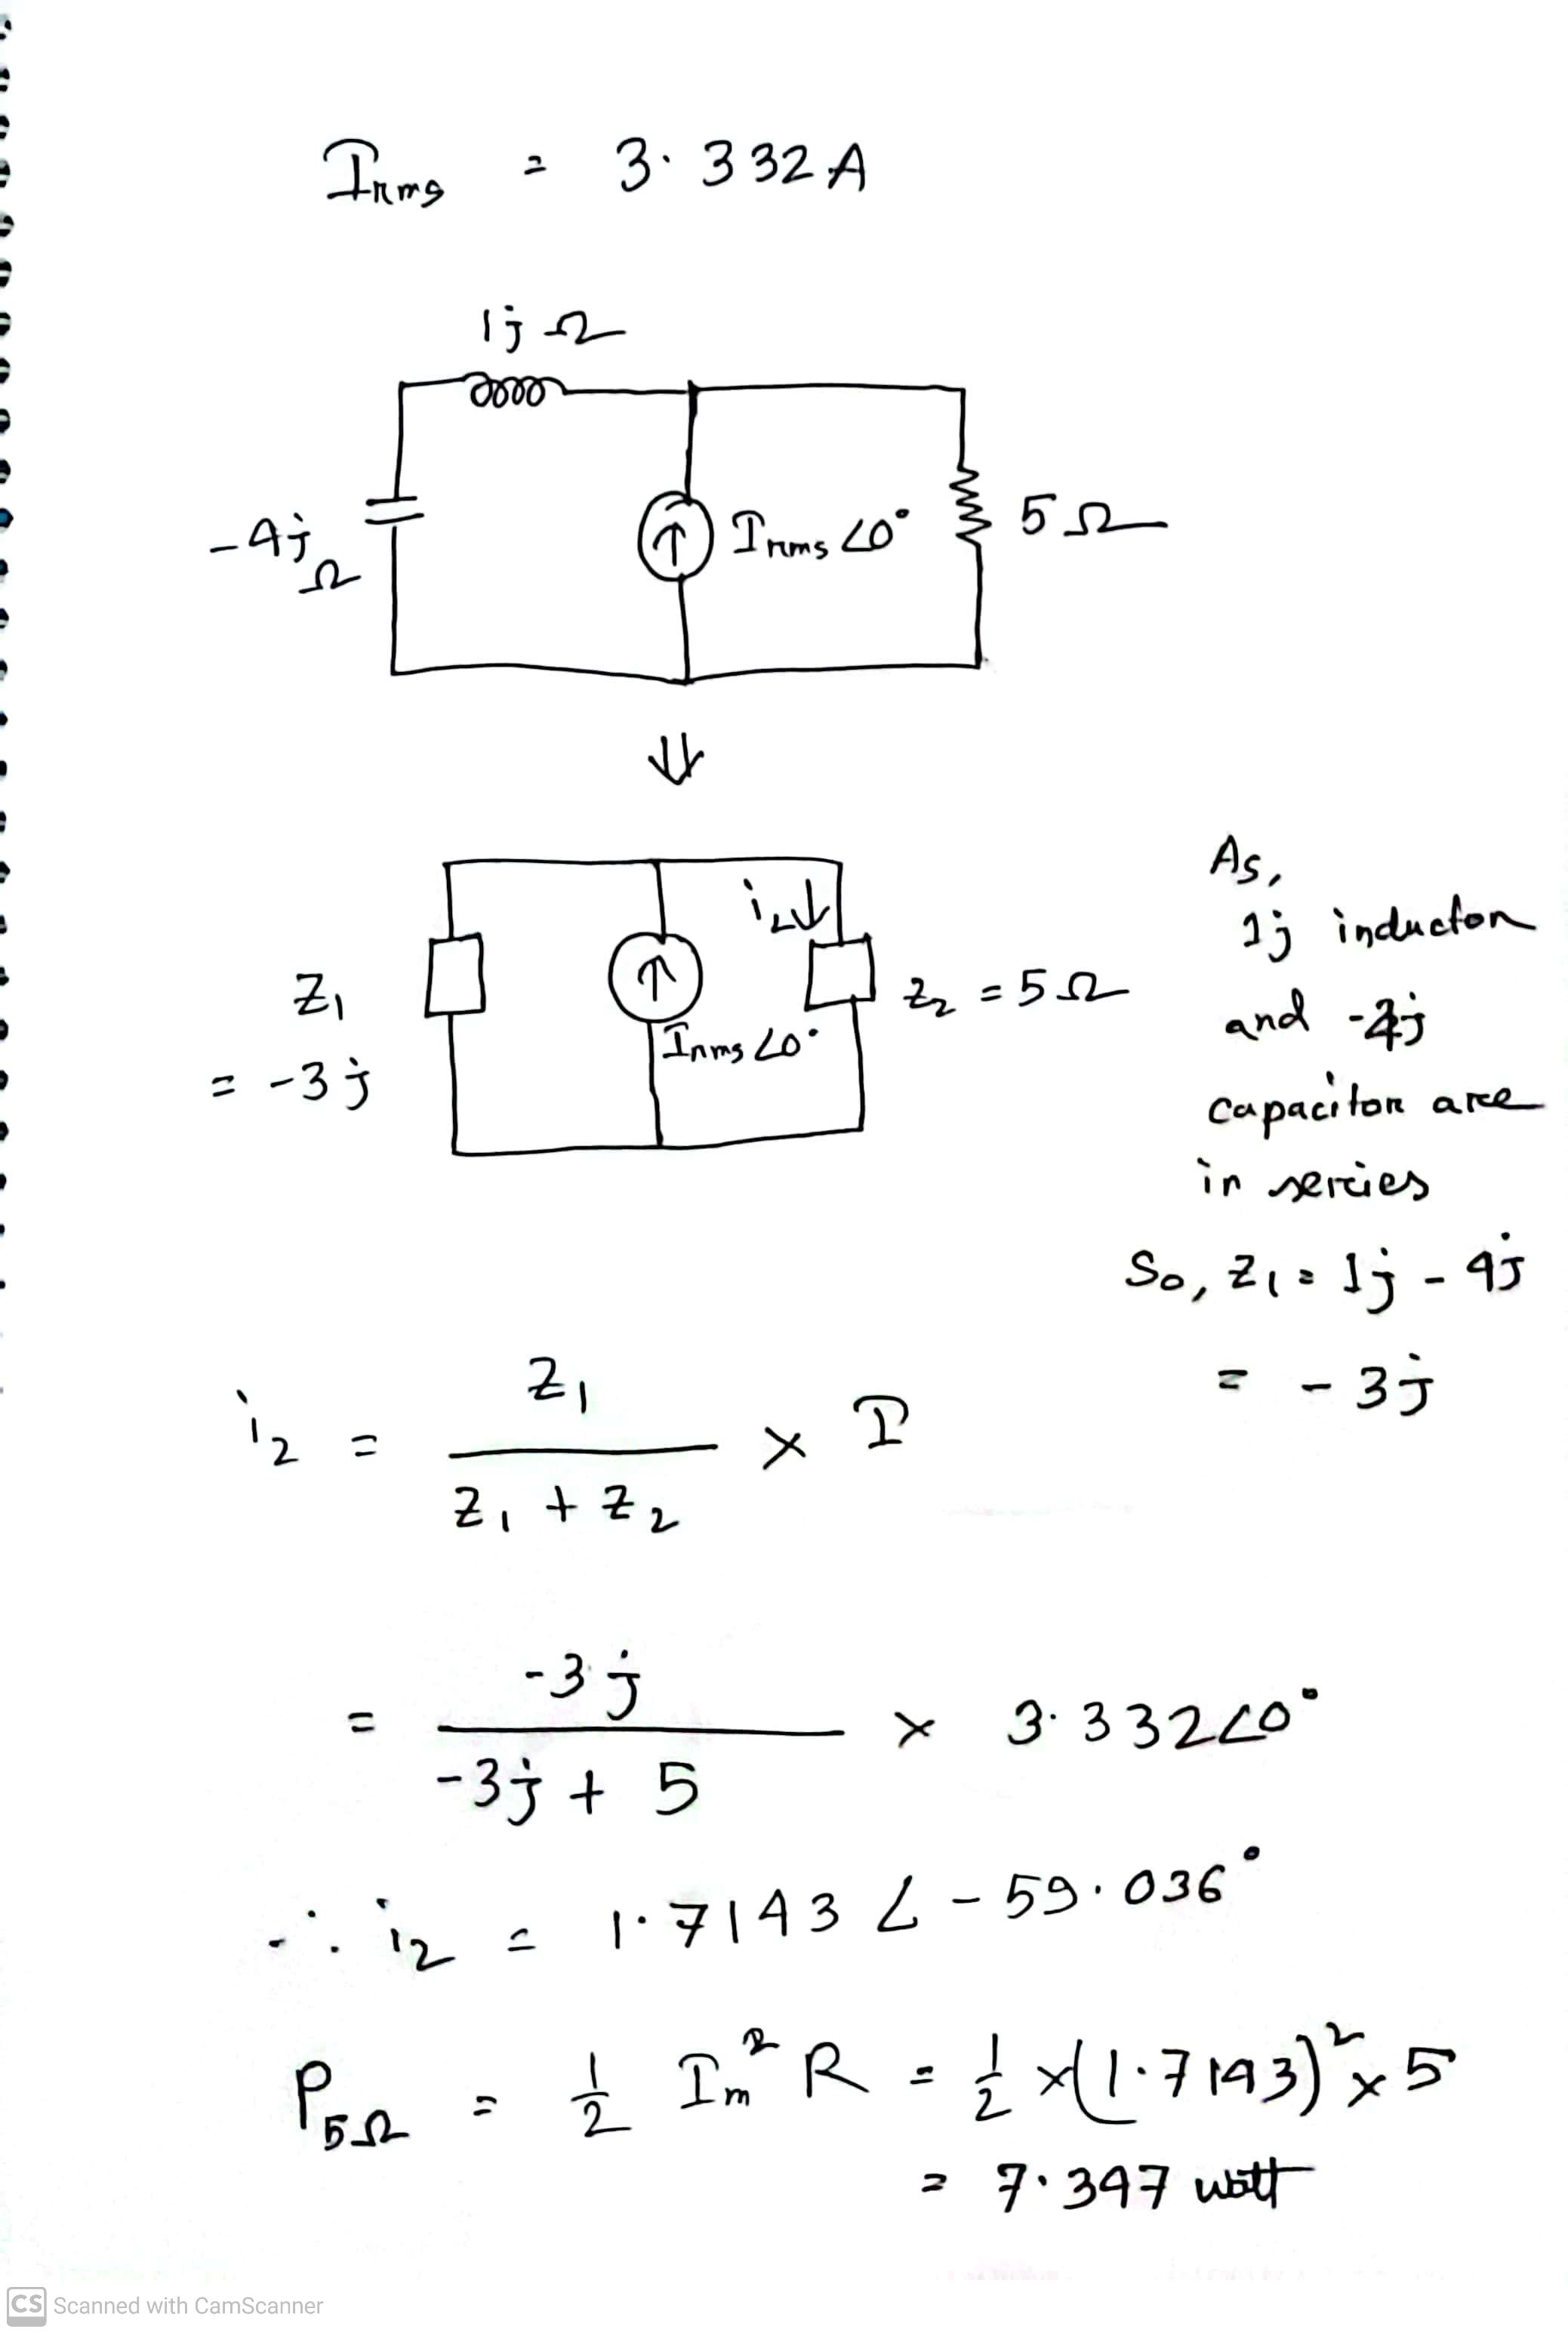 Irms = 3.332 A
1j Ω
-4j Ω
Irms ∠0°
5 Ω
⇓
Z1 = -3j
i2 ↓
Irms ∠0°
Z2 = 5 Ω
As,
1j inductor
and -4j
capacitor are
in series
So, Z1 = 1j - 4j
= -3j
i2 = Z1 / (Z1 + Z2) × I
= -3j / (-3j + 5) × 3.332∠0°
∴ i2 = 1.7143 ∠ -59.036°
P5Ω = 1/2 Im² R = 1/2 × (1.7143)² × 5
= 7.347 watt
CS Scanned with CamScanner